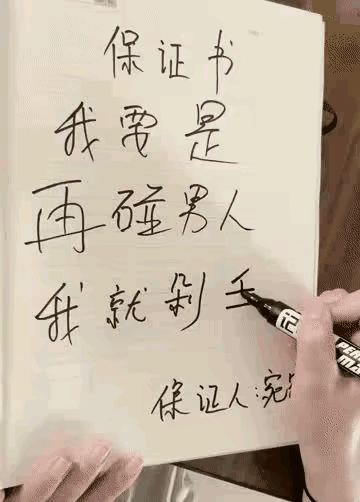 保证书
我要是
再碰男人
我就剁手
保证人:宛